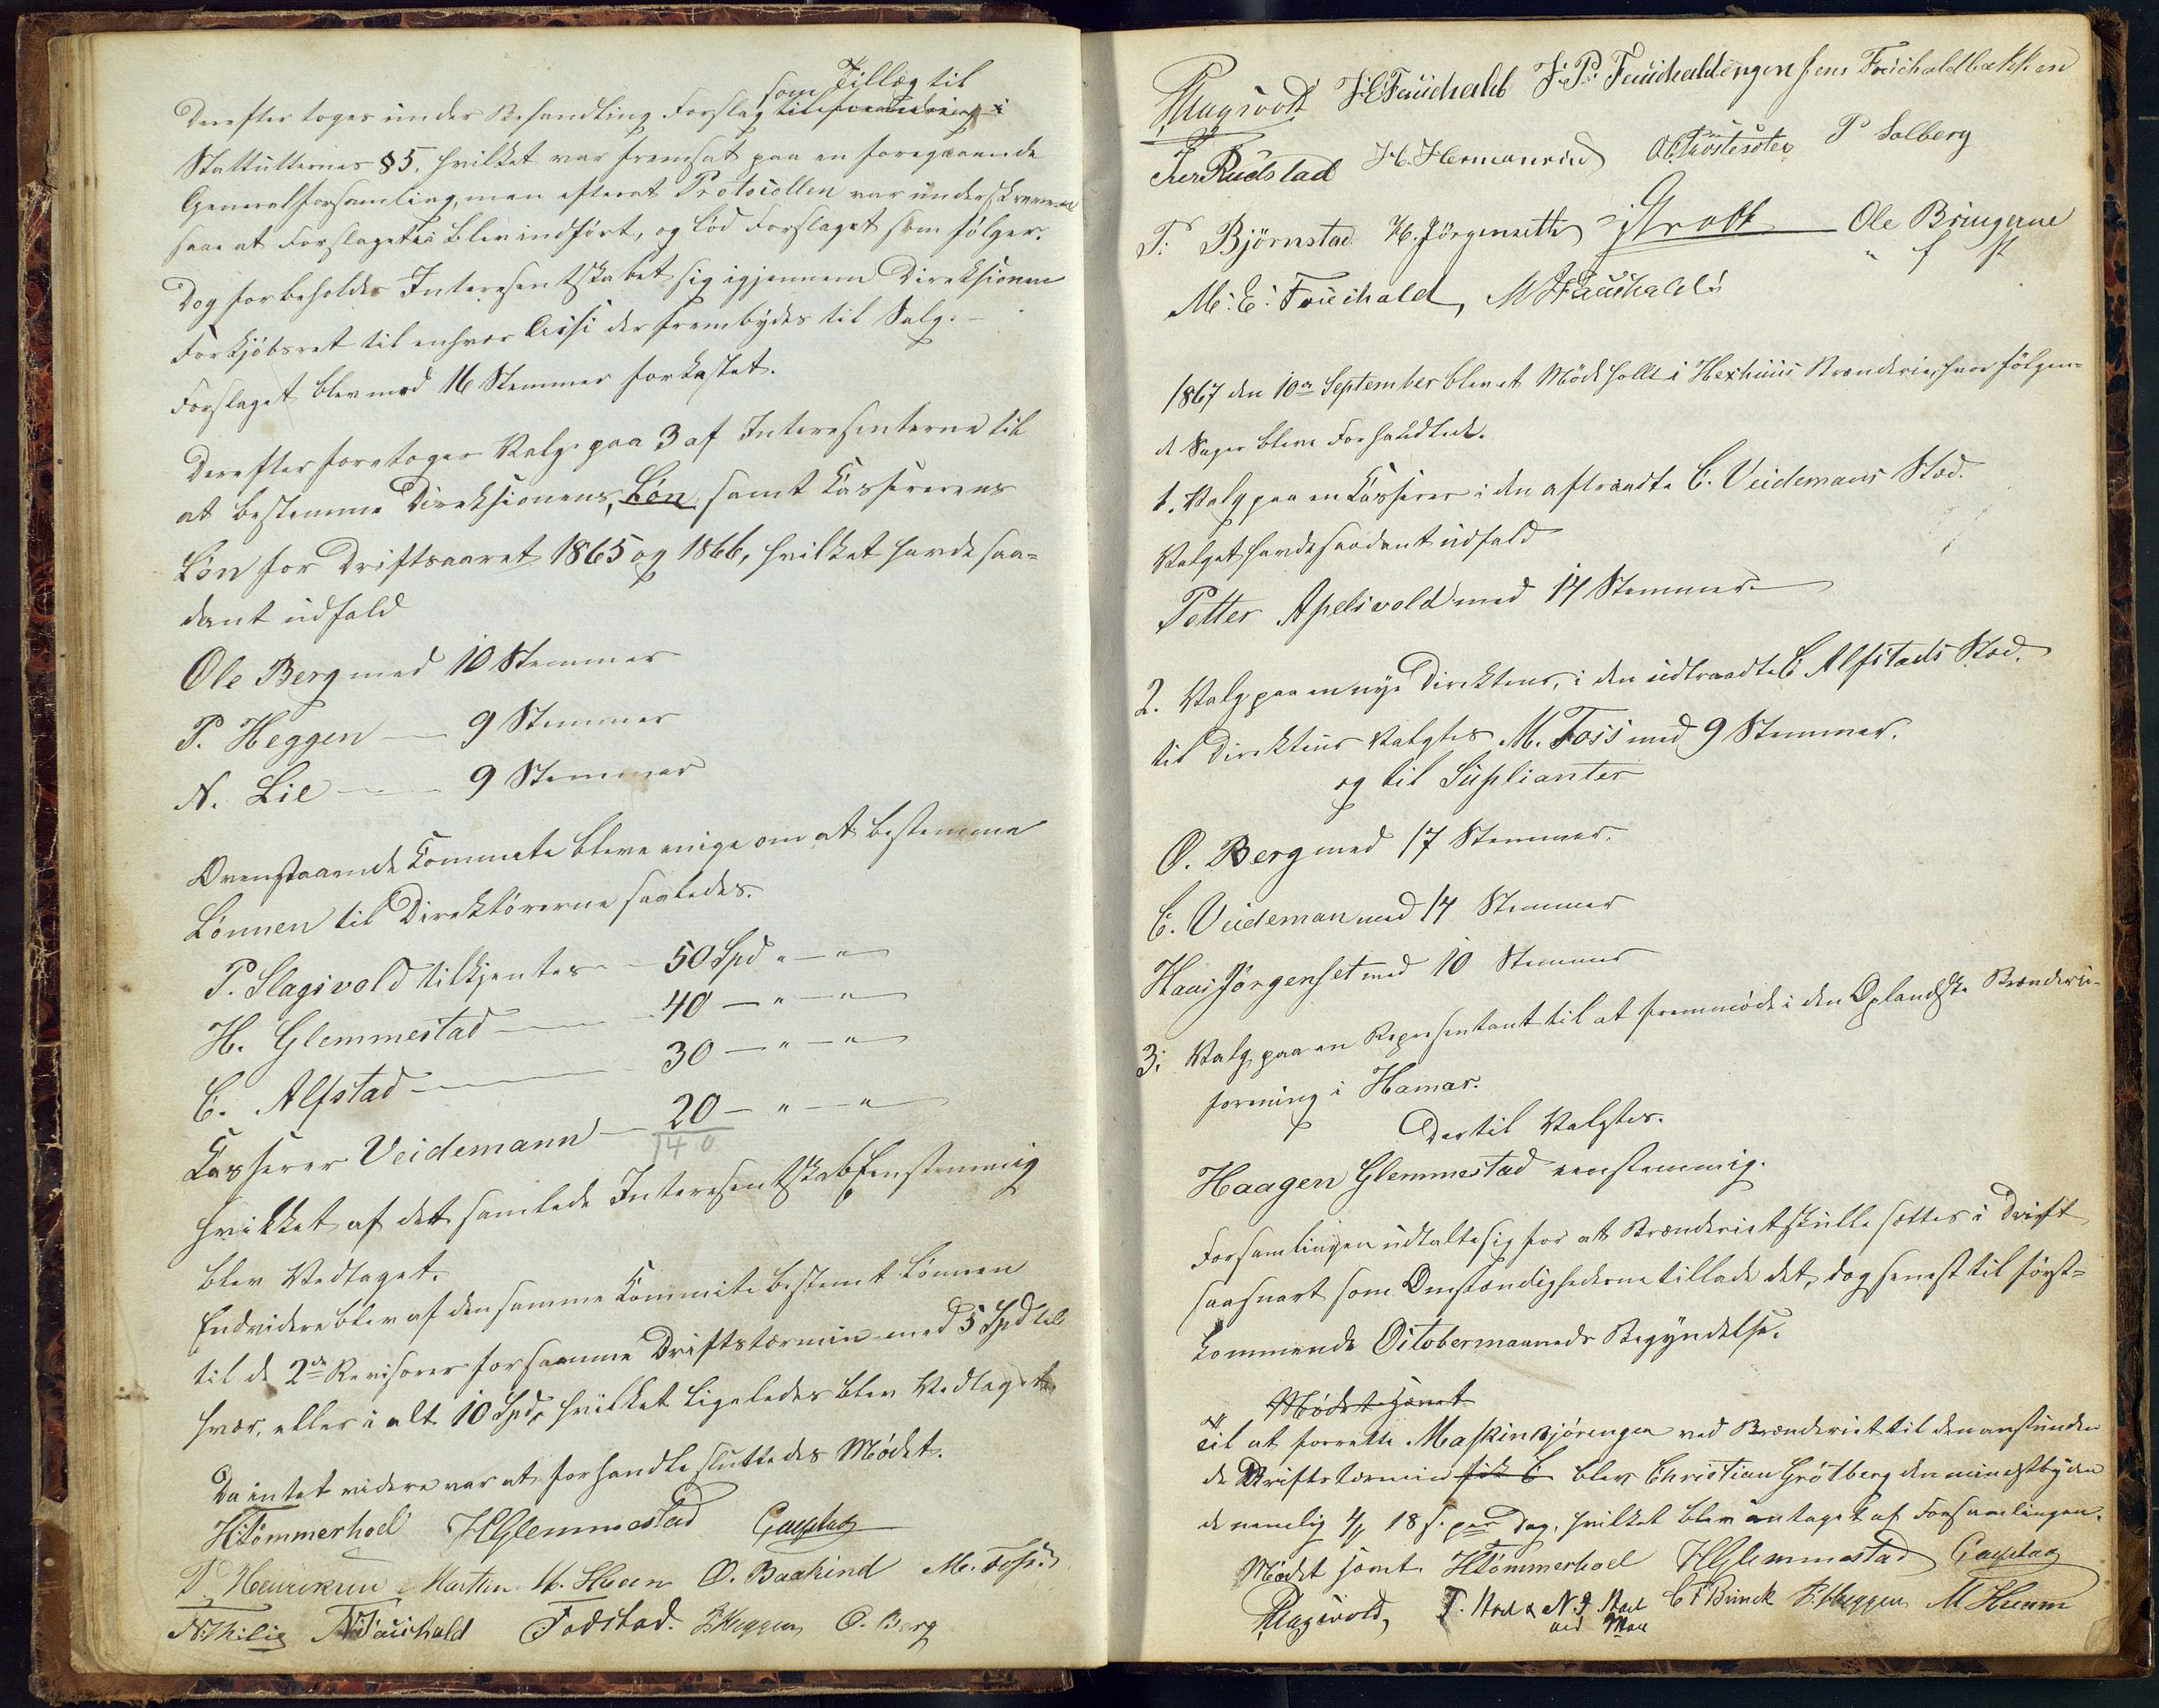 som Tillæg til
Derefter toges under Behandling Forslag til forandring i
Stattutternes § 5. hvilket var fremsat paa en foregaaende
Generalforsamling, men efterat Protocollen var underskreven
saa at Forslaget ei blev indført, og lød Forslaget som følger.
Dog forbeholder Interesentskabet sig igjennem Direksionen
Forkjøbsret til enhver Actie der frembydes til Salg. –
Forslaget blev med 16 Stemmer forkastet.
Derefter foretoges Valg paa 3 af Interesenterne til
at bestemme Direksionens, Løn, samt Kassererens
Løn for Driftsaaret 1865 og 1866, hvilket havde saa=
dant udfald
Ole Berg med 10 Stemmer
P. Heggen — 9 Stemmer
N. Lie — 9 Stemmer
Ovenstaaende Kommete bleve enige om at bestemme
Lønnen til Direktørerne saaledes.
P. Slagsvold tilkjentes — 50 Spd " — "
H. Glemmestad — 40 — " — "
C. Alfstad — 30 — " — "
Kasserer Veidemann — 20 — " — "
140
hvilket af det samlede Interesentskab Eenstemmig
blev Vedtaget.
Endvidere blev af den samme Kommite bestemt Lønnen
til de 2de Revisorer for samme Driftstermin med 5 Spd til
hver, eller i alt 10 Spd, hvilket ligeledes blev Vedtaget.
Da intet videre var at forhandle sluttedes Mødet.
H Tømmerhoel HGlemmestad CAlfstad
P Henriksen Martin M. Sheen O. Baakind M. Foss
N. Thilie N. Fauchald Fodstad. P. Heggen O. Berg
PSlagsvold J E Fauchald J. P. Fauchaldengen Jens Fauchaldbakken
Iver Rudstad H. Hermanrud P Solberg
T: Bjørnstad H. Jørgensette Ole Bringerne
M: E: Fauchald, M Fauchald:
1867 den 10de September blev et Møde holdt i Hexhuus Brænderie, hvor følgen=
de Sager bleve Forhandlede.
1. Valg paa en Kasserer i den aftraadte C. Veidemans Sted.
Valget havde saadant udfald
Petter Apelsvold med 14 Stemmer
2. Valg paa en nye Direkteur, i den udtraadte C Alfstads Sted.
til Direkteur Valgtes M. Foss med 9 Stemmer.
og til Suplianter
O. Berg med 17 Stemmer.
C. Veideman med 14 Stemmer
Hans Jørgenset med 10 Stemmer
3: Valg paa en Repesentant til at fremmøde i den Oplandske Brænderie-
forening i Hamar.
Dertil Valgtes.
Haagen Glemmestad eenstemmig.
Forsamlingen udtalte sig for at Brænderiet skulle sættes i Drift
saasnart som Omstændighederne tillade det, dog senest til først=
kommende Octobermaaneds Begyndelse.
Mødet hævet
Til at forrette Maskinkjøringen ved Brænderiet til den anstunden
de Driftstermin fik C blev Christian Grøtberg den mindstbyden
de nemlig 4/ 18 s. per Dag, hvilket blev antaget af Forsamlingen.
Mødet hævet. HTømmerhoel HGlemmestad CAlfstad
PSlagsvold, T. Hoel & N. J. Hoel C F Brinck P. Heggen M Heem
ved Moe